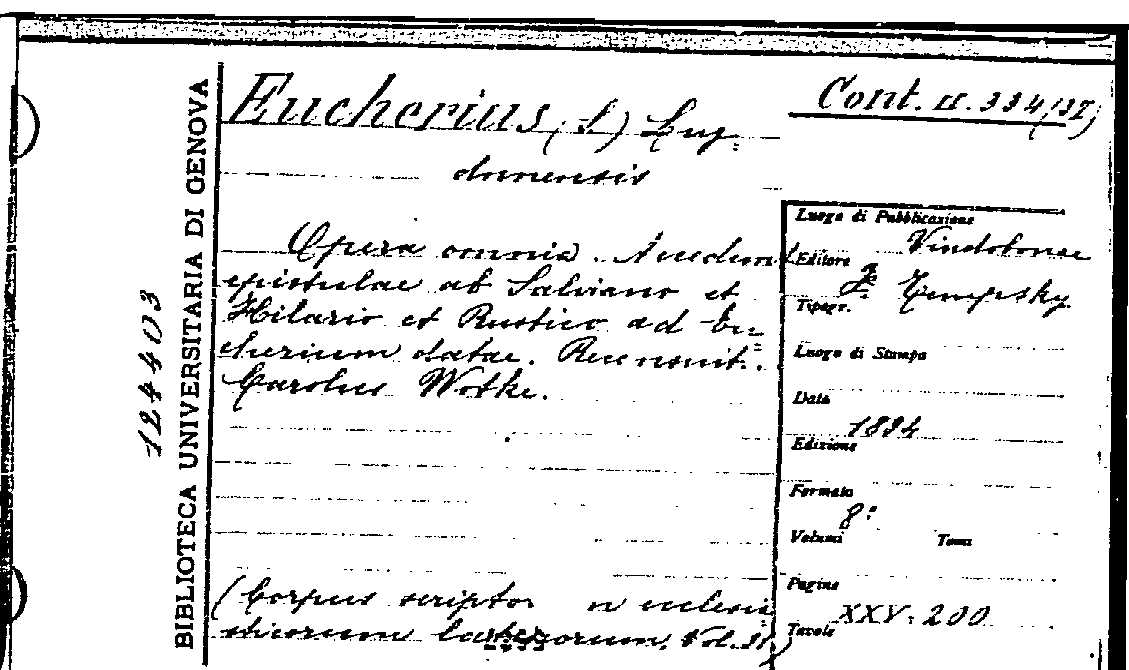 Eucherius (S.) Lug=
dunensis
Cont. II. 334/32
Opera omnia. Accedunt
epistulae ab Salviano et
Hilario et Rustico ad Eu=
cherium datae. Recensuit.
Carolus Wotke.
(Corpus scriptor n ecclesia
sticorum latinorum, Vol.
Luogo di Pubblicazione
Vindobonae
Editore
F. Tempsky
Tipogr.
Luogo di Stampa
Data
1894
Edizione
Formato
8º
Volumi Tomi
Pagine
XXV. 200
Tavole
BIBLIOTECA UNIVERSITARIA DI GENOVA
124403